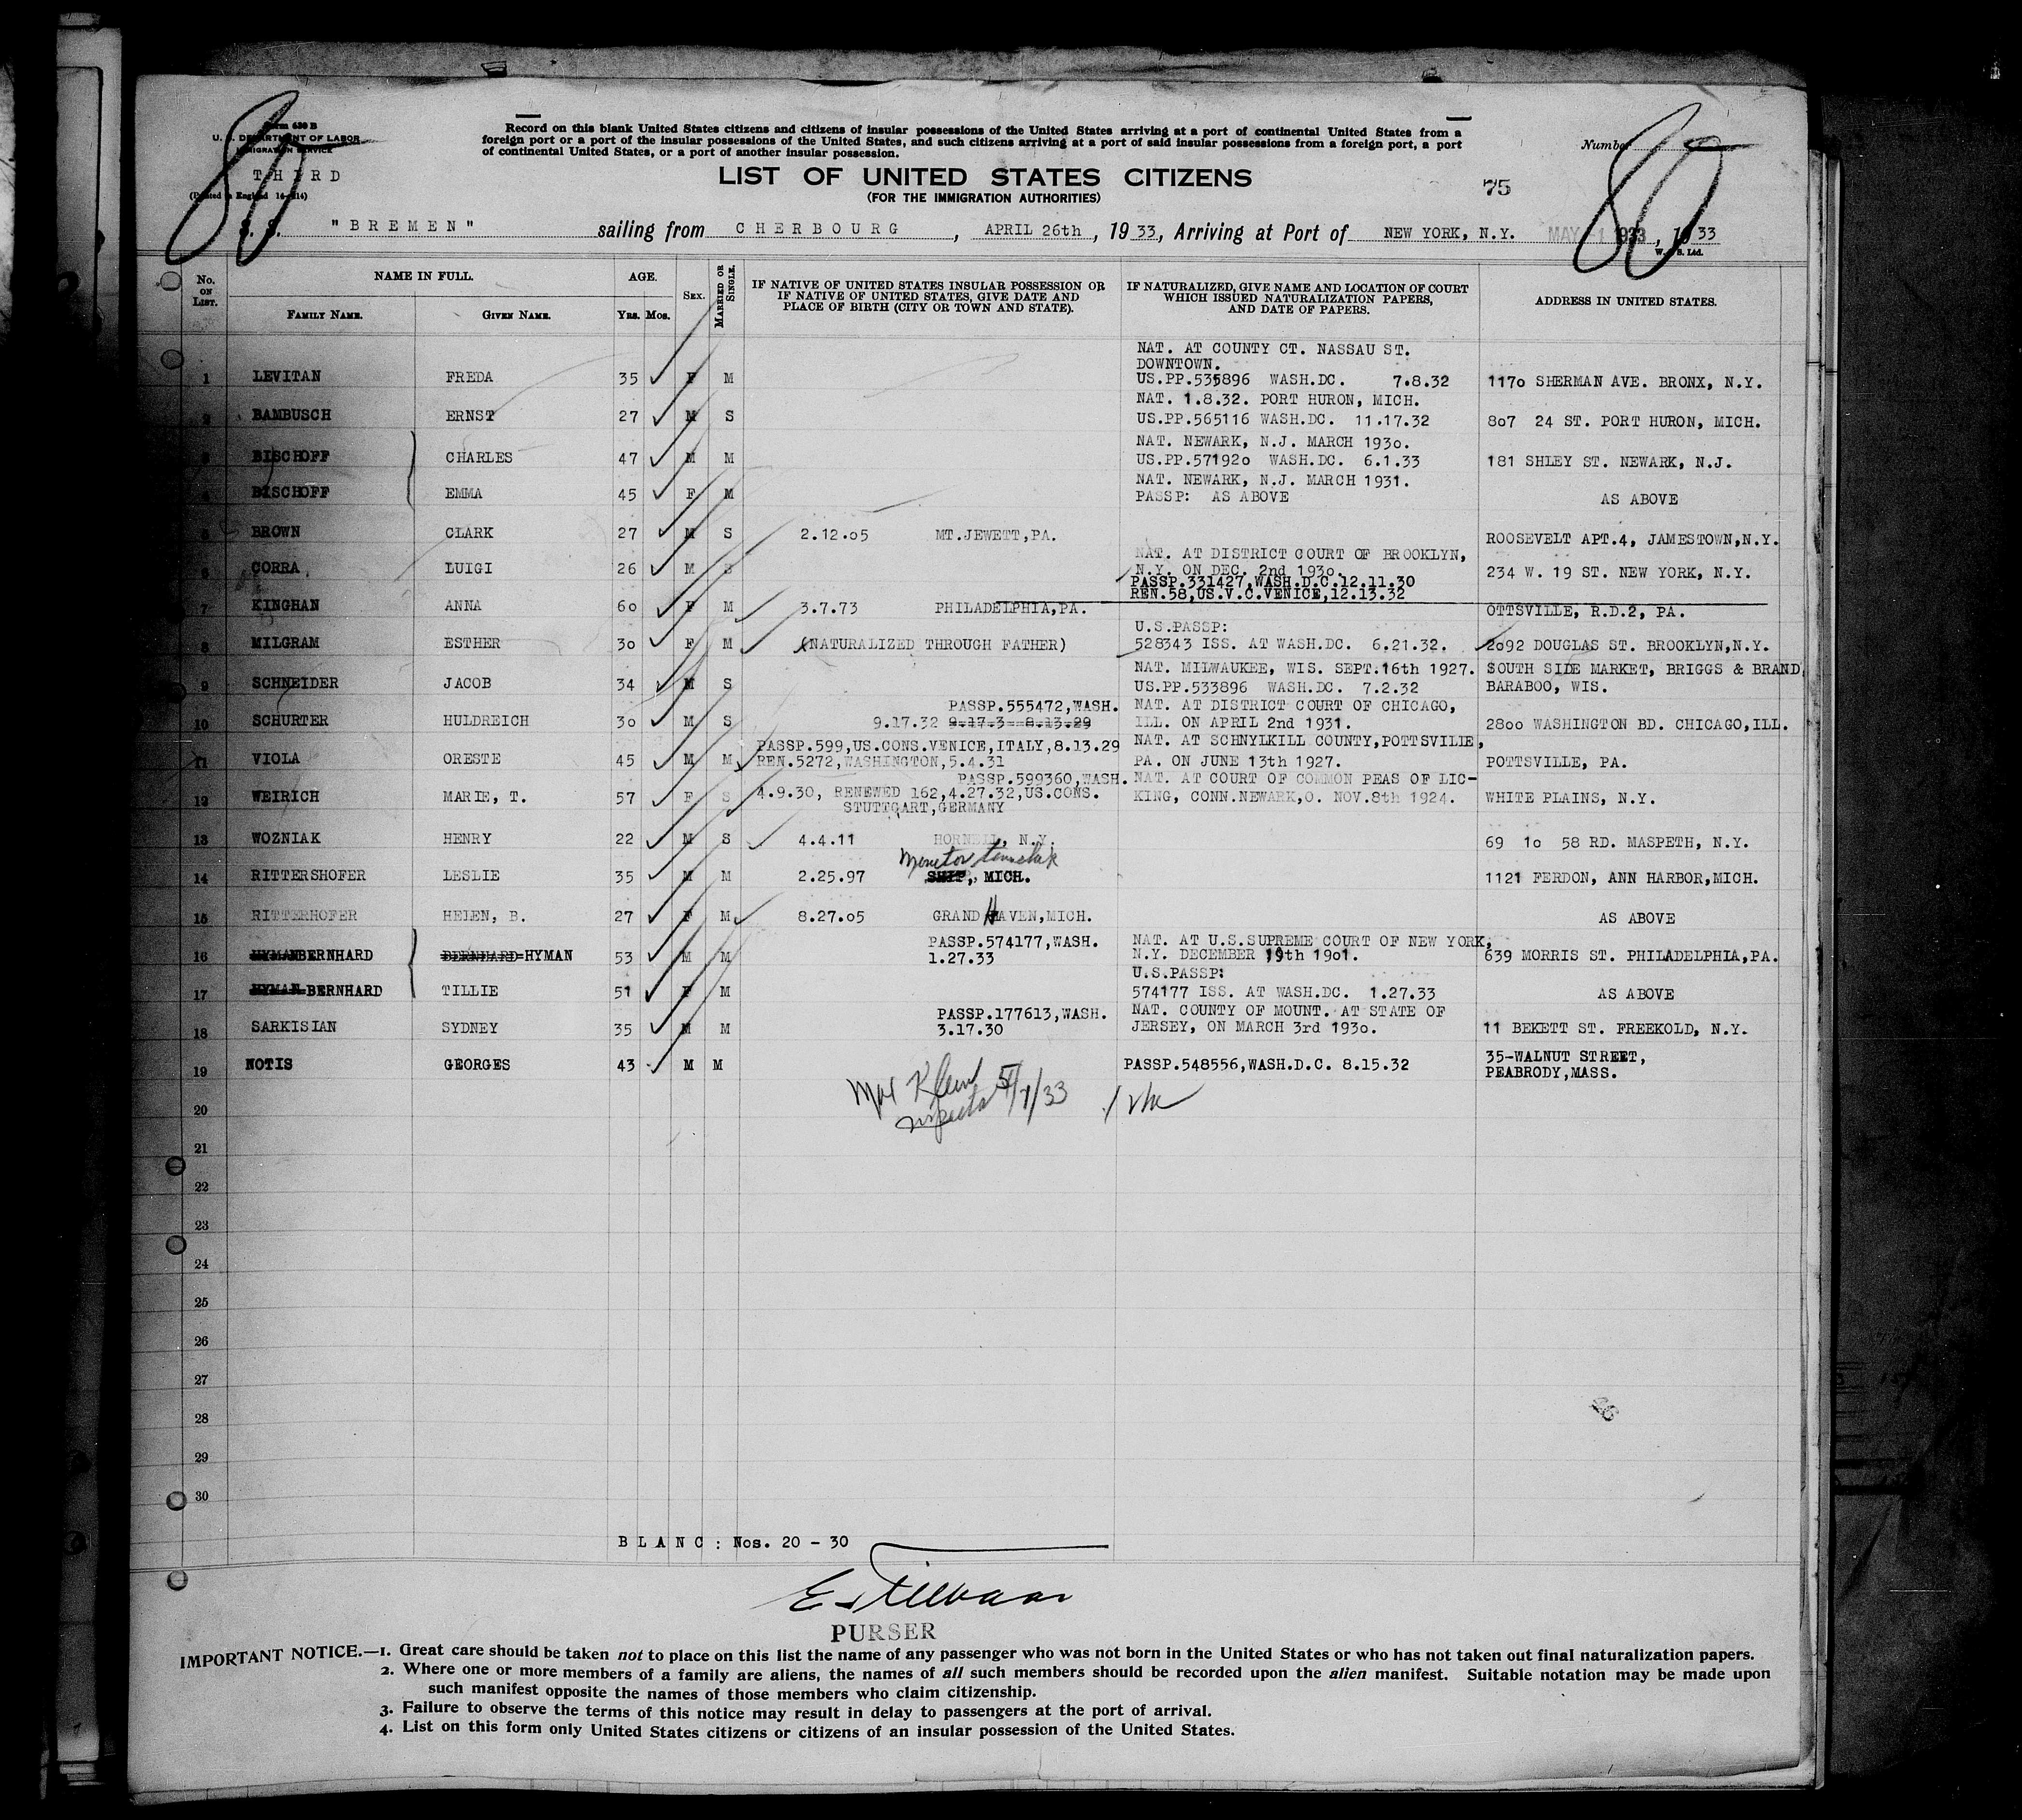 80
80
Form 630 B
U. S. DEPARTMENT OF LABOR
IMMIGRATION SERVICE
THIRD
Record on this blank United States citizens and citizens of insular possessions of the United States arriving at a port of continental United States from a
foreign port or a port of the insular possessions of the United States, and such citizens arriving at a port of said insular possessions from a foreign port, a port
of continental United States, or a port of another insular possession.
Number
LIST OF UNITED STATES CITIZENS
(FOR THE IMMIGRATION AUTHORITIES)
75
S. S. "BREMEN" sailing from CHERBOURG, APRIL 26th, 1933, Arriving at Port of NEW YORK, N.Y. MAY 1 1933, 1933
No. ON LIST.
NAME IN FULL.
FAMILY NAME. GIVEN NAME.
AGE.
YRS. MOS.
SEX.
MARRIED OR SINGLE.
IF NATIVE OF UNITED STATES INSULAR POSSESSION OR
IF NATIVE OF UNITED STATES, GIVE DATE AND
PLACE OF BIRTH (CITY OR TOWN AND STATE).
IF NATURALIZED, GIVE NAME AND LOCATION OF COURT
WHICH ISSUED NATURALIZATION PAPERS,
AND DATE OF PAPERS.
ADDRESS IN UNITED STATES.
NAT. AT COUNTY CT. NASSAU ST.
DOWNTOWN.
1 LEVITAN FREDA 35 F M US.PP.535896 WASH.DC. 7.8.32 1170 SHERMAN AVE. BRONX, N.Y.
NAT. 1.8.32. PORT HURON, MICH.
2 BAMBUSCH ERNST 27 M S US.PP.565116 WASH.DC. 11.17.32 807 24 ST. PORT HURON, MICH.
NAT. NEWARK, N.J. MARCH 1930.
3 BISCHOFF CHARLES 47 M M US.PP.571920 WASH.DC. 6.1.33 181 SHLEY ST. NEWARK, N.J.
NAT. NEWARK, N.J. MARCH 1931.
4 BISCHOFF EMMA 45 F M PASSP: AS ABOVE AS ABOVE
5 BROWN CLARK 27 M S 2.12.05 MT.JEWETT,PA. ROOSEVELT APT.4, JAMESTOWN,N.Y.
NAT. AT DISTRICT COURT OF BROOKLYN,
6 CORRA LUIGI 26 M S N.Y. ON DEC. 2nd 1930. 234 W. 19 ST. NEW YORK, N.Y.
PASSP.331427,WASH.D.C.12.11.30
REN.58,US.V.C.VENICE,12.13.32
7 KINGHAN ANNA 60 F M 3.7.73 PHILADELPHIA,PA. OTTSVILLE, R.D.2, PA.
U.S.PASSP:
8 MILGRAM ESTHER 30 F M (NATURALIZED THROUGH FATHER) 528343 ISS. AT WASH.DC. 6.21.32. 2092 DOUGLAS ST. BROOKLYN,N.Y.
NAT. MILWAUKEE, WIS. SEPT.16th 1927. SOUTH SIDE MARKET, BRIGGS & BRAND,
9 SCHNEIDER JACOB 34 M S US.PP.533896 WASH.DC. 7.2.32 BARABOO, WIS.
PASSP.555472,WASH. NAT. AT DISTRICT COURT OF CHICAGO,
10 SCHURTER HULDREICH 30 M S 9.17.32 9.17.3--8.13.29 ILL. ON APRIL 2nd 1931. 2800 WASHINGTON BD. CHICAGO,ILL.
PASSP.599,US.CONS.VENICE,ITALY,8.13.29 NAT. AT SCHNYLKILL COUNTY,POTTSVILIE,
11 VIOLA ORESTE 45 M M REN.5272,WASHINGTON,5.4.31 PA. ON JUNE 13th 1927. POTTSVILLE, PA.
PASSP.599360,WASH. NAT. AT COURT OF COMMON PEAS OF LIC-
12 WEIRICH MARIE, T. 57 F S 4.9.30, RENEWED 162,4.27.32,US.CONS. KING, CONN.NEWARK,O. NOV.8th 1924. WHITE PLAINS, N.Y.
STUTTGART,GERMANY
13 WOZNIAK HENRY 22 M S 4.4.11 HORNELL, N.Y. 69 10 58 RD. MASPETH, N.Y.
Monitor township
14 RITTERSHOFER LESLIE 35 M M 2.25.97 SHIP, MICH. 1121 FERDON, ANN HARBOR,MICH.
15 RITTERHOFER HELEN, B. 27 F M 8.27.05 GRAND HAVEN,MICH. AS ABOVE
PASSP.574177,WASH. NAT. AT U.S.SUPREME COURT OF NEW YORK,
16 HYMAN BERNHARD BERNHARD HYMAN 53 M M 1.27.33 N.Y. DECEMBER 19th 1901. 639 MORRIS ST. PHILADELPHIA,PA.
U.S.PASSP:
17 HYMAN BERNHARD TILLIE 51 F M 574177 ISS. AT WASH.DC. 1.27.33 AS ABOVE
PASSP.177613,WASH. NAT. COUNTY OF MOUNT. AT STATE OF
18 SARKISIAN SYDNEY 35 M M 3.17.30 JERSEY, ON MARCH 3rd 1930. 11 BEKETT ST. FREEKOLD, N.Y.
19 NOTIS GEORGES 43 M M PASSP.548556,WASH.D.C. 8.15.32 35-WALNUT STREET,
PEABRODY,MASS.
Max Klein 5/1/33
20
21
22
23
24
25
26
27
28
29
30
BLANC: Nos. 20 - 30
PURSER
IMPORTANT NOTICE.—1. Great care should be taken not to place on this list the name of any passenger who was not born in the United States or who has not taken out final naturalization papers.
2. Where one or more members of a family are aliens, the names of all such members should be recorded upon the alien manifest. Suitable notation may be made upon
such manifest opposite the names of those members who claim citizenship.
3. Failure to observe the terms of this notice may result in delay to passengers at the port of arrival.
4. List on this form only United States citizens or citizens of an insular possession of the United States.